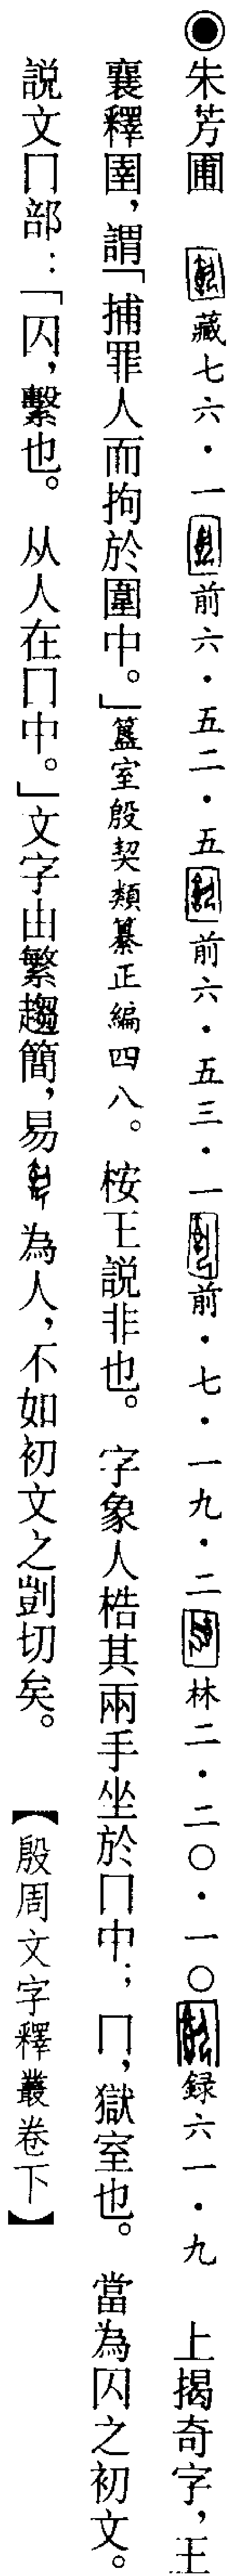 ◉朱芳圃 藏七六·一 前六·五二·五 前六·五三·一 前·七·一九·二 林二·二〇·一〇 録六一·九 上揭奇字，王
襄釋圉，謂「捕罪人而拘於圍中。」簠室殷契類纂正編四八。 桉王說非也。 字象人梏其兩手坐於冂中；冂，獄室也。 當為囚之初文。
說文冂部：「囚，繫也。 从人在冂中。」文字由繁趨簡，易 為人，不如初文之剴切矣。 【殷周文字釋叢卷下】